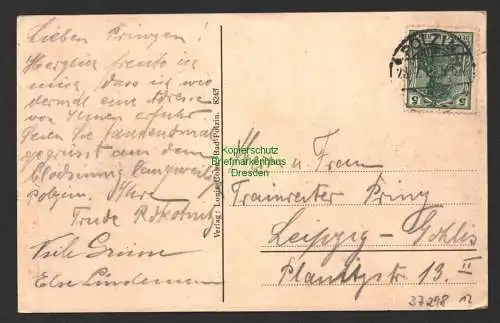 Lieben Prinzen!
Herzlich freute ich
mich, dass ich wie
dermal eine Adresse
von Ihnen erfuhr.
Seien Sie tausendmal
gegrüsst aus dem
langweilig
Polzin. Ihre
Trude
Else Lindemann
Verlag: Louis Bad-Polzin. 8247
POLZIN
5 5
Kopierschutz
Briefmarkenhaus
Dresden
Herrn u. Frau
Trainreiter Prinz
Leipzig-Gohlis
Planitzstr. 13. III
37298